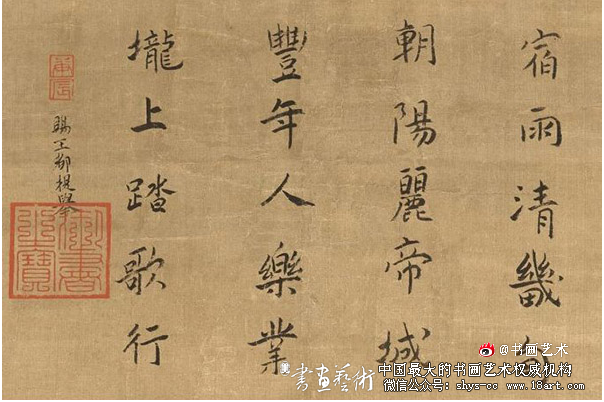 宿雨清畿甸
朝陽麗帝城
豐年人樂業
壠上踏歌行
賜王都提舉
庚辰
御書之寶
@书画艺术
書畫藝術
中国最大的书画艺术权威机构
微信公众号: shys-cc www.18art.com